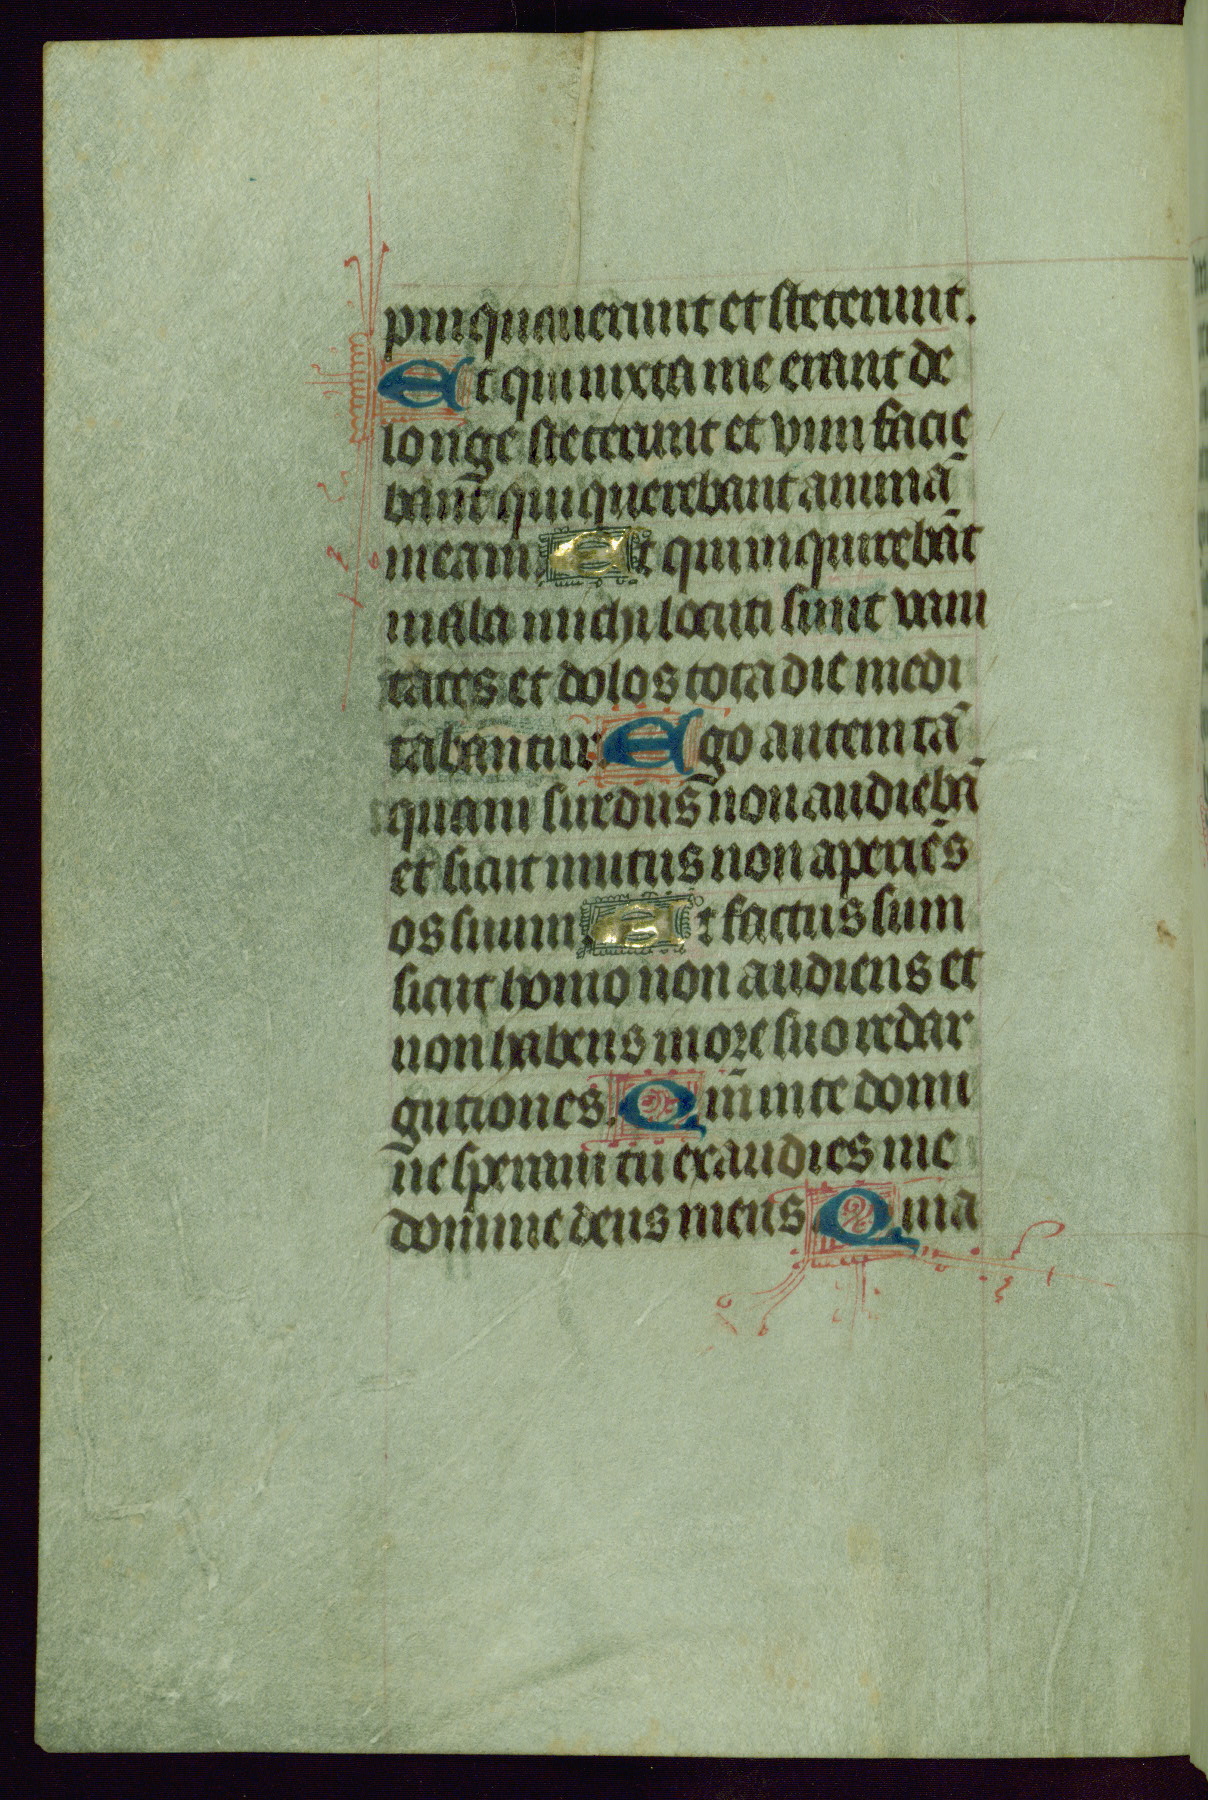 pinquauerunt et steterunt.
Et qui iuxta me erant de
longe steterunt et vim facie
bant̄ qui querebant animā
meam. Et qui inquirebāt
mala michi locuti sunt vani
tates et dolos tota die medi
tabantur. Ego autem tā
quam surdus non audiebā
et sicut mutus non aperiēs
os suum. Et factus sum
sicut homo non audiens et
non habens in ore suo redar
gutiones. Qm̄ in te domi
ne speraui tu exaudies me
domine deus meus Quia